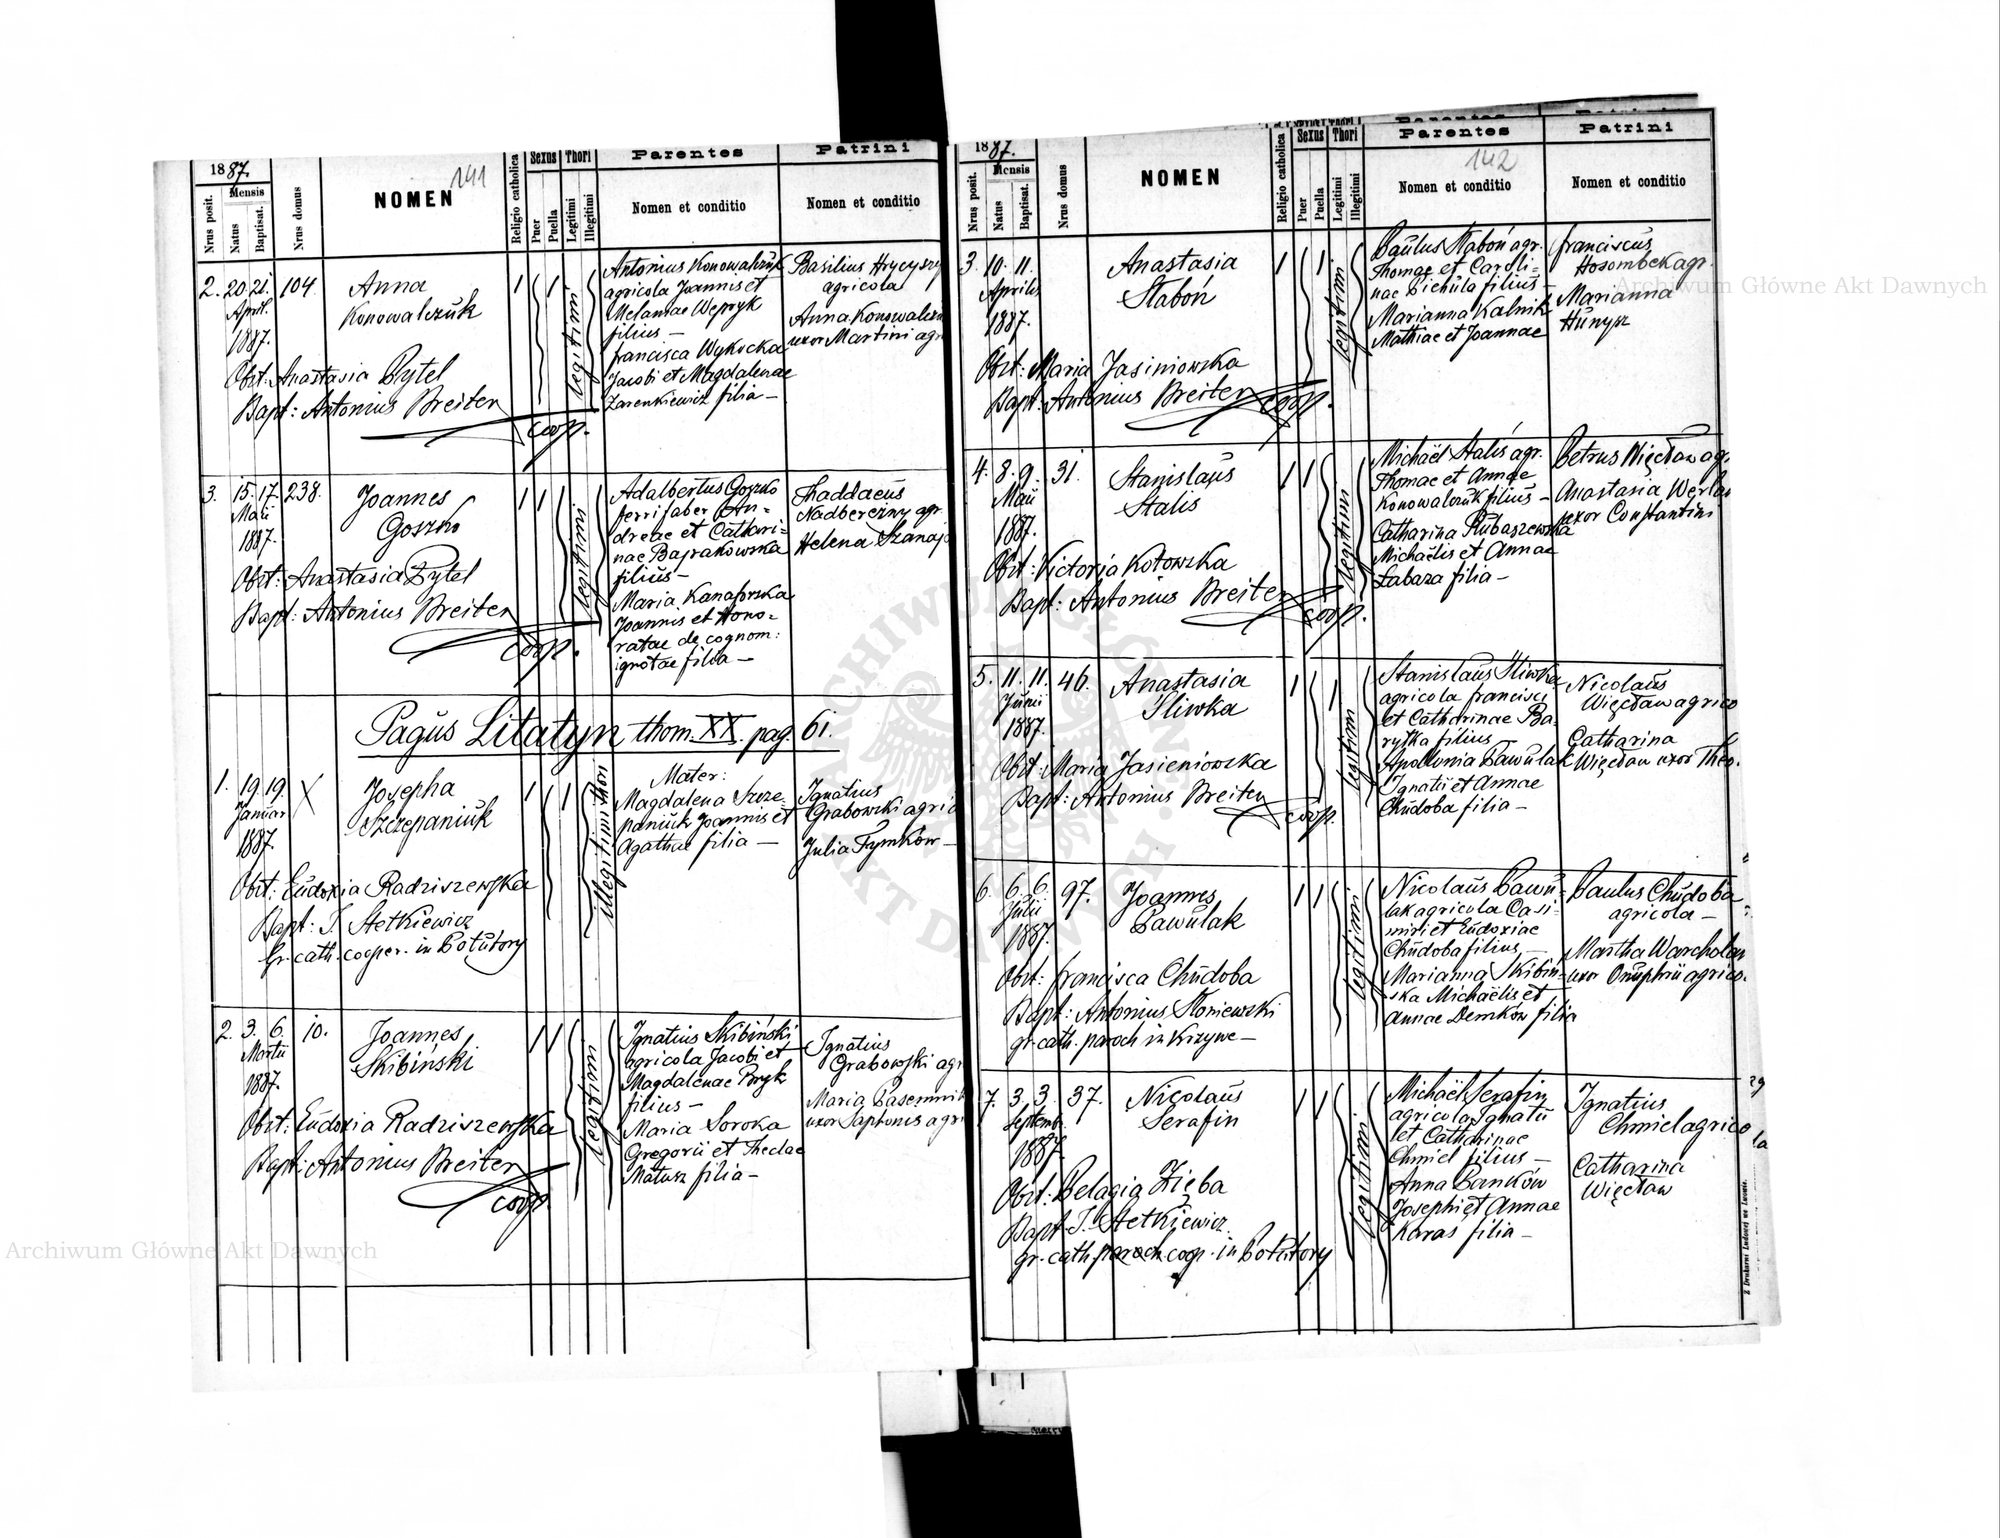 1887.
141
Nrus posit.
Mensis
Natus
Baptisat.
Nrus domus
NOMEN
Religio catholica
Sexus
Puer
Puella
Thori
Legitimi
Illegitimi
Parentes
Nomen et conditio
Patrini
Nomen et conditio
2. 20. 21. 104. Anna
April. Konowalczuk
1887.
Obst: Anastasia Pytel
Bapt: Antonius Breiter
coop.
legitimi
Antonius Konowalczuk
agricola Joannis et
Melaniae Wepryk
filius —
Francisca Wykocka
Jacobi et Magdalenae
Zarenkiewicz filia —
Basilius Hrycyszy
agricola
Anna Konowalczu
uxor Martini agr
3. 15. 17. 238. Joannes
Maii Goszko
1887.
Obst: Anastasia Pytel
Bapt: Antonius Breiter
coop.
legitimi
Adalbertus Goszko
ferrifaber An-
dreae et Cathari-
nae Bajrakowska
filius —
Maria
Joannis et Hono-
ratae de cognom:
ignotae filia —
Thaddaeus
Nadbereżny agr
Helena Szanaj
Pagus Litatyn thom. XX. pag. 61.
1. 19. 19. X Josepha
Januar Szczepaniuk
1887.
Obst: Eudoxia Radziszewska
Bapt: J. Stetkiewicz
Gr. cath. cooper. in Potutory
illegitimi thori
Mater:
Magdalena Szcze-
paniuk Joannis et
Agathae filia —
Ignatius
Grabowski agric
Julia Tymków —
2. 3. 6. 10. Joannes
Martii Skibiński
1887.
Obst: Eudoxia Radziszewska
Bapt: Antonius Breiter
coop.
legitimi
Ignatius Skibiński
agricola Jacobi et
Magdalenae Bryk
filius —
Maria Soroka
Gregorii et Theclae
Matusz filia —
Ignatius
Grabowski agr
Maria Pasemnik
uxor Saphonis agri
1887.
142
Nrus posit.
Mensis
Natus
Baptisat.
Nrus domus
NOMEN
Religio catholica
Sexus
Puer
Puella
Thori
Legitimi
Illegitimi
Parentes
Nomen et conditio
Patrini
Nomen et conditio
3. 10. 11. Anastasia
Aprilis Staboń
1887.
Obst: Maria Jasiniowska
Bapt: Antonius Breiter
coop.
legitimi
Paulus Staboń agr.
Thomae et Caroli-
nae Cichula filius —
Marianna Kalnik
Mathiae et Joannae
Franciscus
Hosombek agr.
Marianna
Hunysz
4. 8. 9. 31. Stanislaus
Maii Stalis
1887.
Obst: Victoria Kotowska
Bapt: Antonius Breiter
coop.
legitimi
Michaël Stalis agr.
Thomae et Annae
Konowalczuk filius —
Catharina Rubaszewska
Michaëlis et Annae
Łabaza filia —
Petrus Więcław agr
Anastasia
uxor Constantini
5. 11. 11. 46. Anastasia
Junii Śliwka
1887.
Obst: Maria Jasieniowska
Bapt: Antonius Breiter
coop.
legitimi
Stanislaus Śliwka
agricola Francisci
et Catharinae Ba-
ryłka filius —
Apollonia Pawulak
Ignatii et Annae
Chudoba filia —
Nicolaus
Więcław agrico
Catharina
Więcław uxor Theo.
6. 6. 6. 97. Joannes
Julii Pawulak
1887.
Obst: Francisca Chudoba
Bapt: Antonius Słoniewski
gr. cath. paroch in Krzywe —
legitimi
Nicolaus Pawu-
lak agricola Casi-
miri et Eudoxiae
Chudoba filius —
Marianna Skibin-
ska Michaëlis et
Annae Demków filia
Paulus Chudoba
agricola —
Martha
uxor Onuphrii agrico.
7. 3. 3. 37. Nicolaus
Septemb. Serafin
1887.
Obst: Pelagia Zięba
Bapt. J. Stetkiewicz
Gr. cath. paroch. coop. in Potutory
legitimi
Michaël Serafin
agricola Ignatii
et Catharinae
Chmiel filius —
Anna Panków
Josephi et Annae
Karas filia —
Ignatius
Chmiel agrico
la
Catharina
Więcław
Z Drukarni Ludowej we Lwowie.
Archiwum Główne Akt Dawnych
Archiwum Główne Akt Dawnych
ARCHIWUM GŁÓWNE AKT DAWNYCH